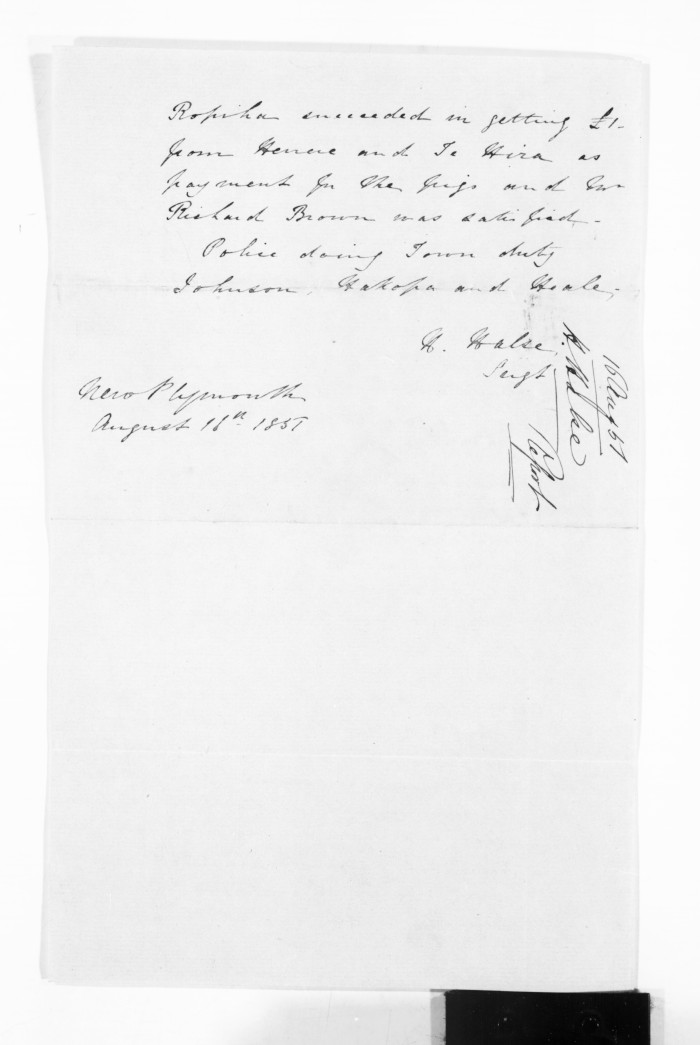 Ropiha succeeded in getting £1-
from Henere and Te Hira as
payment for the pigs and Mr
Richard Brown was satisfied -
Police doing Town duty
Johnson, Hakopa and Heale,
H. Halse,
Sergt
New Plymouth
August 16th 1851
16 Aug 51
H Halse
Report